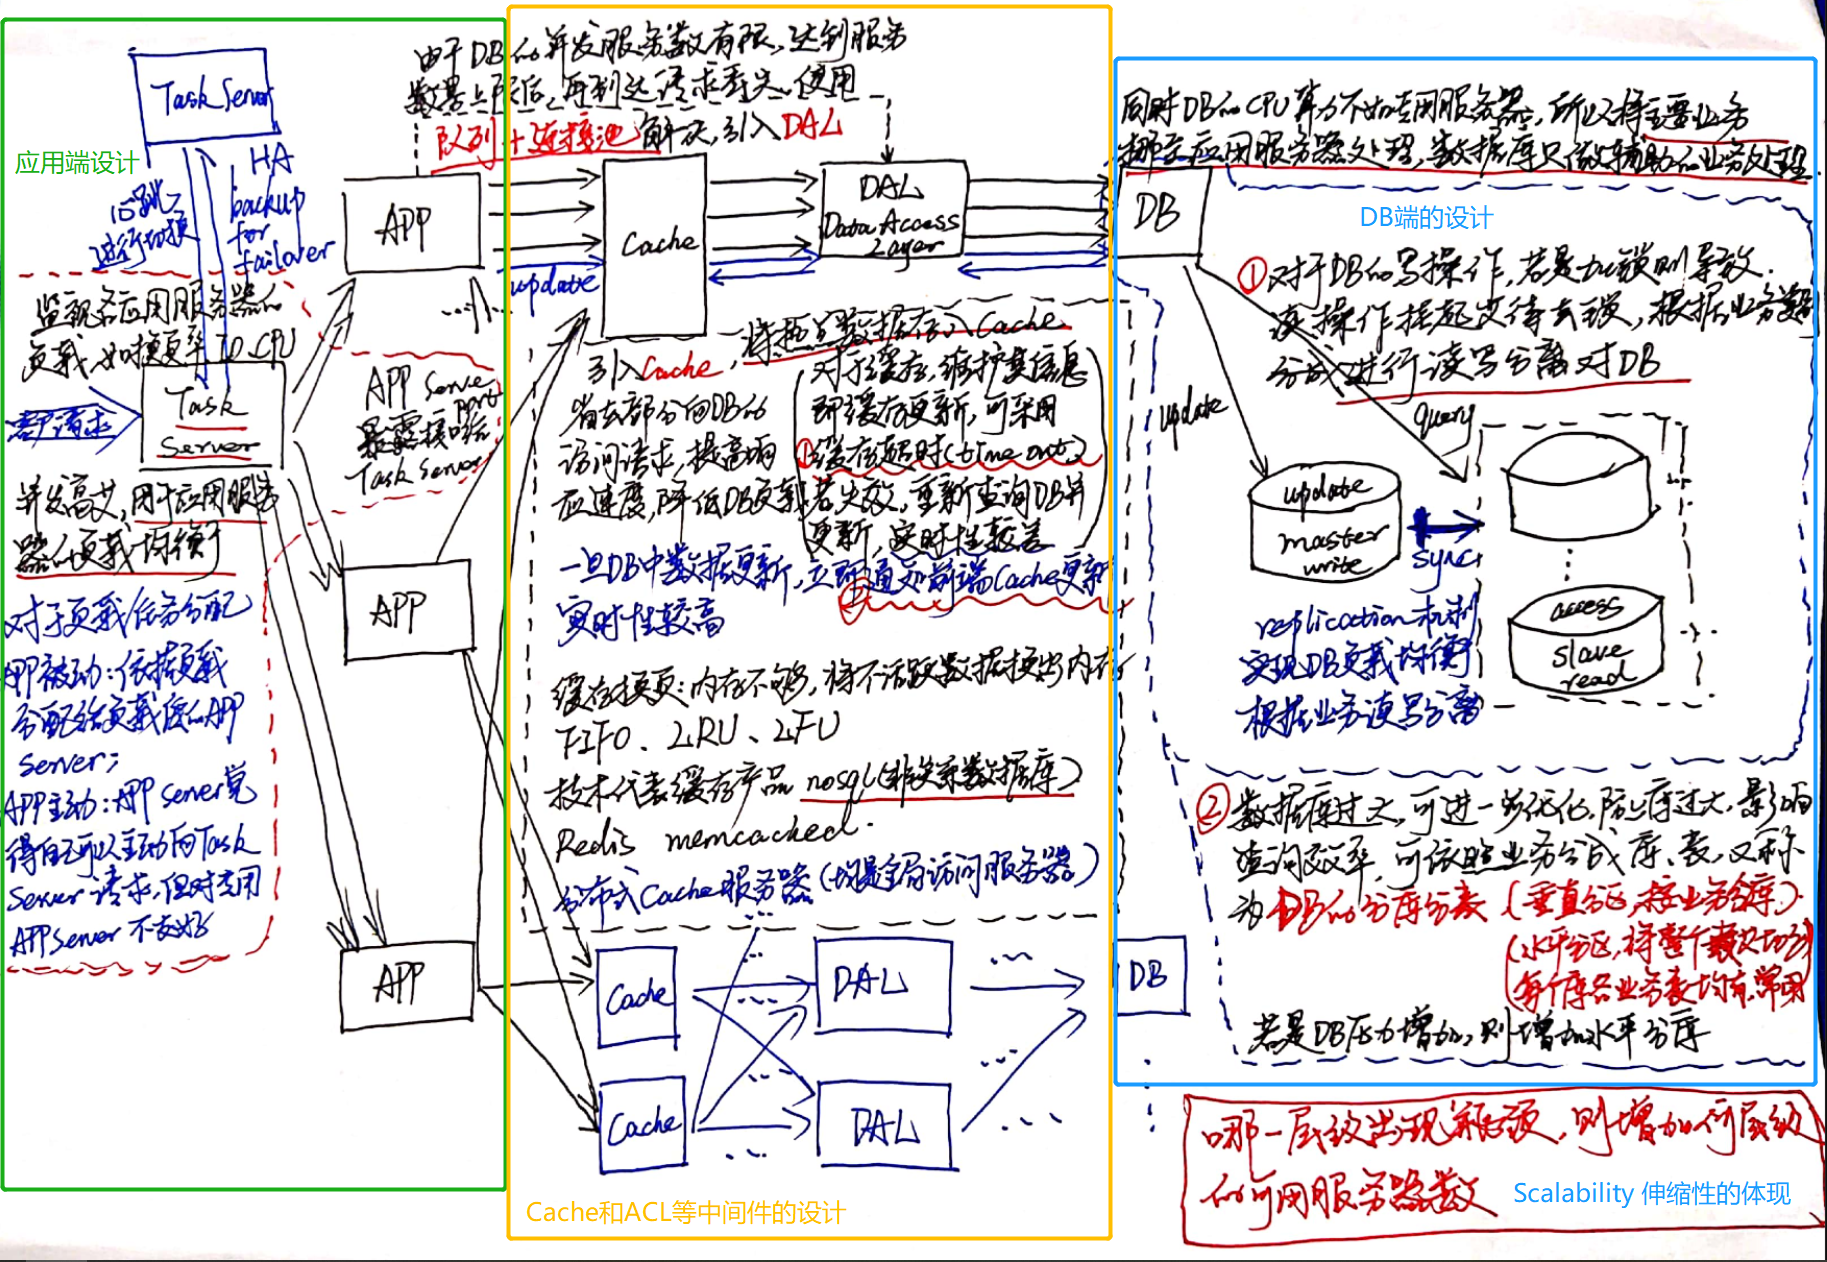 应用端设计
Task Server
HA
backup
for
failover
心跳
进行切换
监视各应用服务器的
负载,如换页率 IO CPU
客户请求
Task
Server
并发高并,用于应用服务
器的负载均衡
APP Server
暴露接口给
port
Task Server
对于负载任务分配
APP被动:依据负载
分配给负载低的APP
Server;
APP主动:APP server觉
得自己可以主动向Task
Server请求,但对专用
APP Server 不友好
APP
APP
APP
由于DB的并发服务数有限,达到服务
数量上限后,再到达请求丢失,使用
队列+连接池 解决,引入DAL
update
Cache
DAL
Data Access
Layer
引入Cache,将热点数据存入Cache
省去部分向DB的
访问请求,提高响
应速度,降低DB负载
对于缓存,维护其信息
即缓存更新,可采用
①缓存超时(time out)
若失效,重新查询DB并
更新,实时性较差
一旦DB中数据更新,立即通知前端Cache更新
②
实时性较高
缓存换页:内存不够,将不活跃数据换出内存
FIFO、LRU、LFU
技术代表缓存产品 nosql(非关系数据库)
Redis memcached.
分布式Cache服务器(均是全局访问服务器)
Cache
Cache
DAL
DAL
Cache和ACL等中间件的设计
同时DB的CPU算力不如专用服务器,所以将主要业务
挪到应用服务器处理,数据库只做辅助的业务处理
DB
DB端的设计
①对于DB的写操作,若是加锁则导致
读操作挂起等待去锁,根据业务类型
分成进行读写分离对DB
update
query
update
master
write
sync
access
slave
read
replication机制
实现DB负载均衡
根据业务读写分离
②数据库过大,可进一步优化,防止库过大,影响
查询效率,可依照业务分成库、表,又称
为DB的分库分表(垂直分区,按业务分库)
(水平分区,将整个表切分)
(每个库各业务表均有,常用)
若是DB压力增加,则增加水平分库
DB
哪一层级出现瓶颈,则增加何层级
的可用服务器数
Scalability 伸缩性的体现